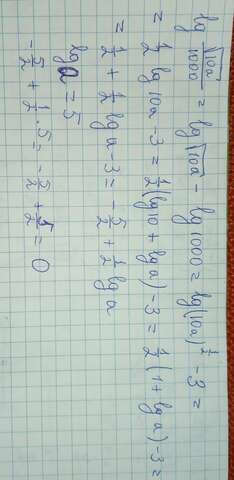 lg √10a/1000 = lg√10a - lg1000 = lg(10a)^½ - 3 =
= ½ lg 10a - 3 = ½(lg10 + lg a) - 3 = ½(1 + lg a) - 3 =
= ½ + ½ lg a - 3 = - 5/2 + ½ lg a
lg a = 5
- 5/2 + ½ · 5 = - 5/2 + 5/2 = 0